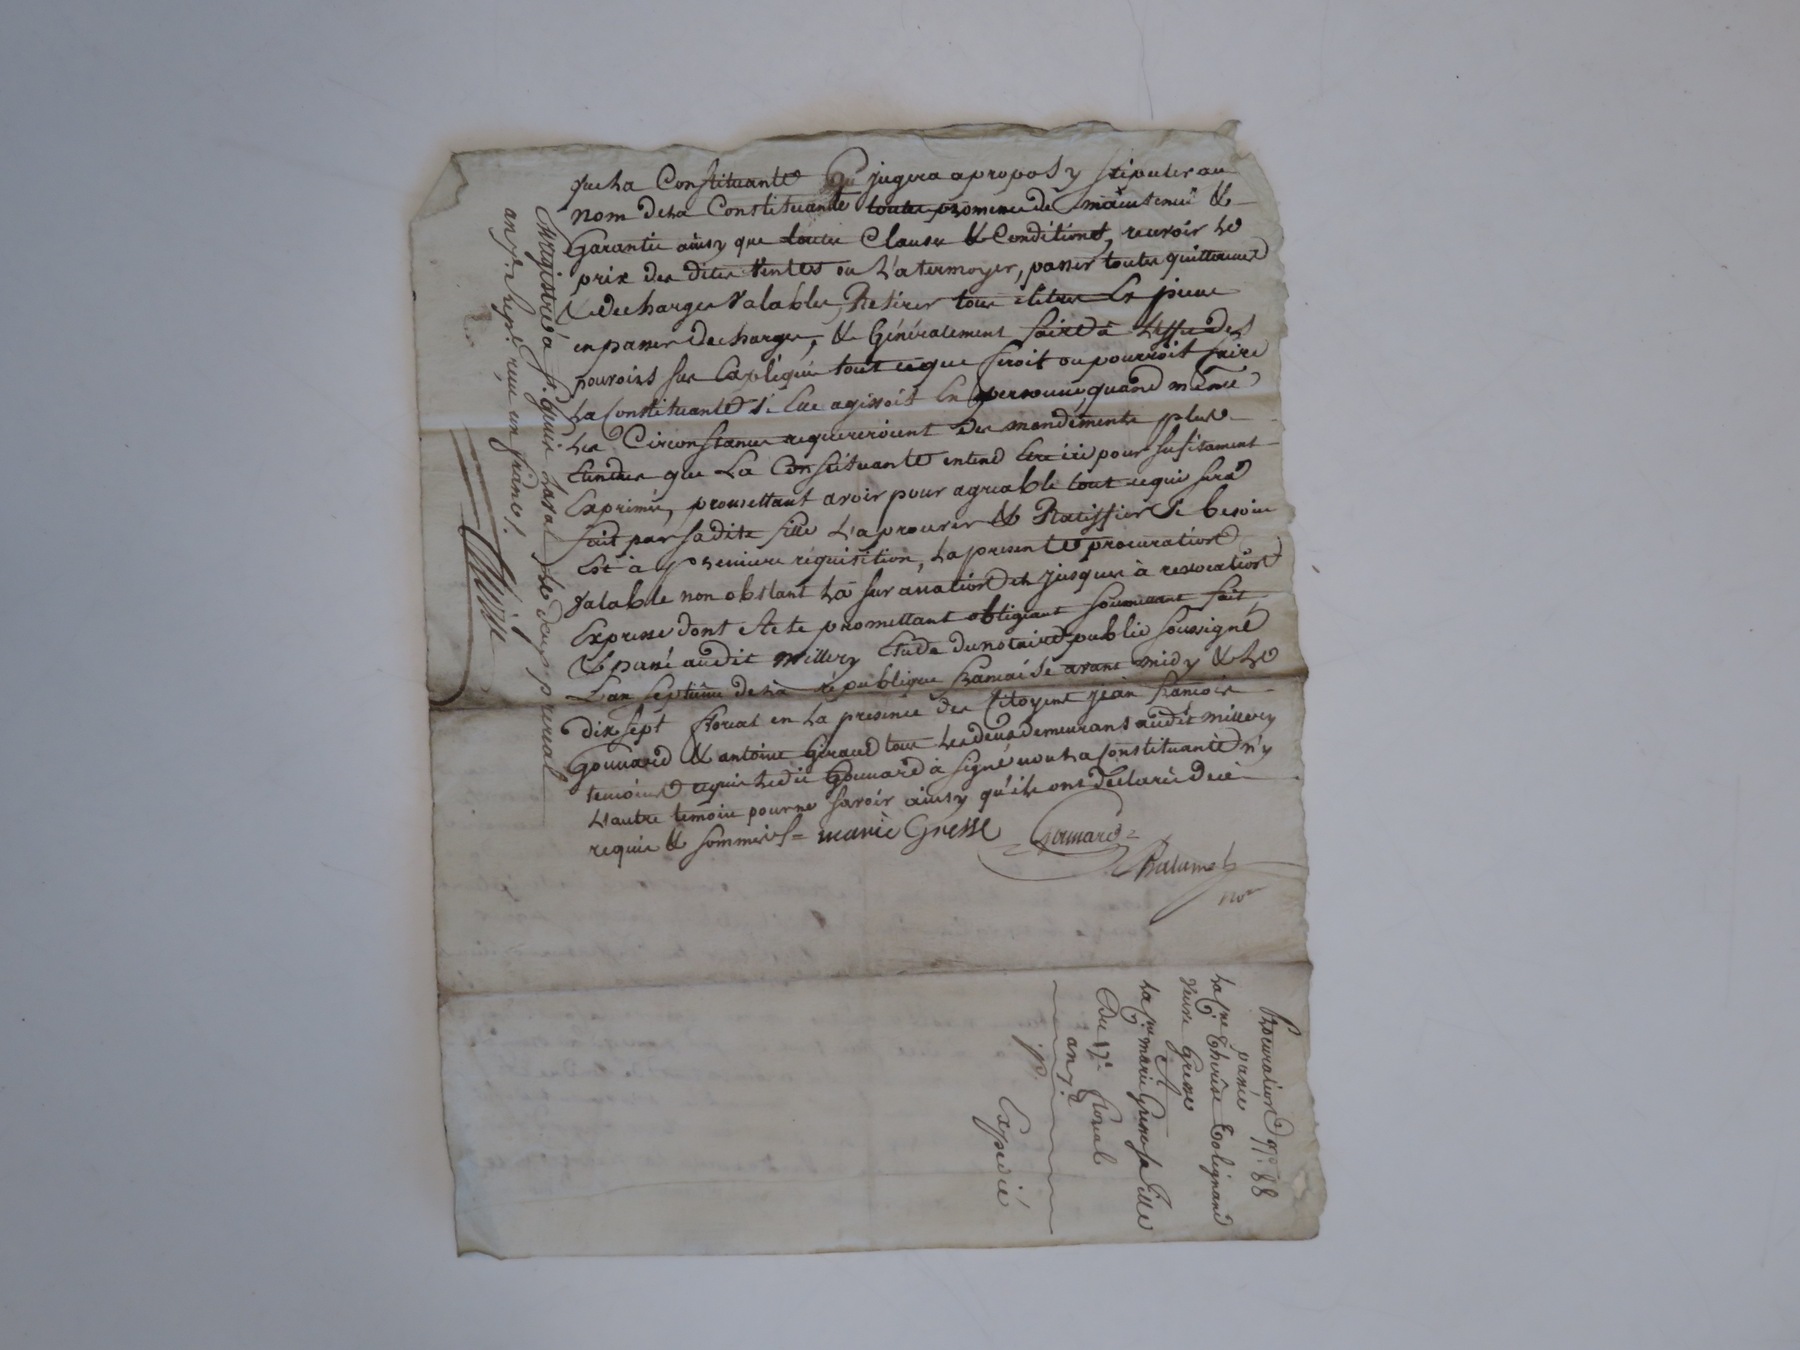 que La Constituante jugera apropos y stipuler au
nom de La Constituante toutes promesses de maintenüe &
Garantie ainsy que toutes Clauses & Conditions, recevoir Le
prix des dites Ventes ou L'atermoyer, passer toutes quittances
& decharges Valables, Retirer tous titres En
en passer decharges, & Généralement faire à L'effet des
pouvoirs sus Expliqués tout ce que feroit ou pourroit faire
La Constituante si Elle agissoit En personne, quand même
Les Circonstances requereroient des mandements plus
Etendus que La Constituante entend Etre ici pour sufisament
Exprimés, promettant avoir pour agreable tout ce qui sera
fait par sadite fille L'aprouver & Ratiffier si besoin
Est à premiere requisition, La presente procuration
Valable non obstant La surannation et jusques à revocation
Expresse dont Acte promettant obligeant soumettant fait
& passé audit millery Etude du notaire public soussigné
L'an septieme de La république francaise avant midy & Le
dix sept floreal en La presence des Citoyens jean francois
Gouvard & antoine Giraud tous Les deux demeurans audit millery
temoins Lédit Gouvard à signé non La Constituante n'y
L'autre temoin pour ne savoir ainsy qu'ils ont declaré de ce
requis & sommés = marie Gresse Gouvard
not
Enregistré à Laval Le deux prereal
an 7e. reçu un franc
Procuration
passée
Therese Eolignand
Veuve Gresse
A
marie Gresse sa fille
Du 17e floreal
an 7e
Expedié
88